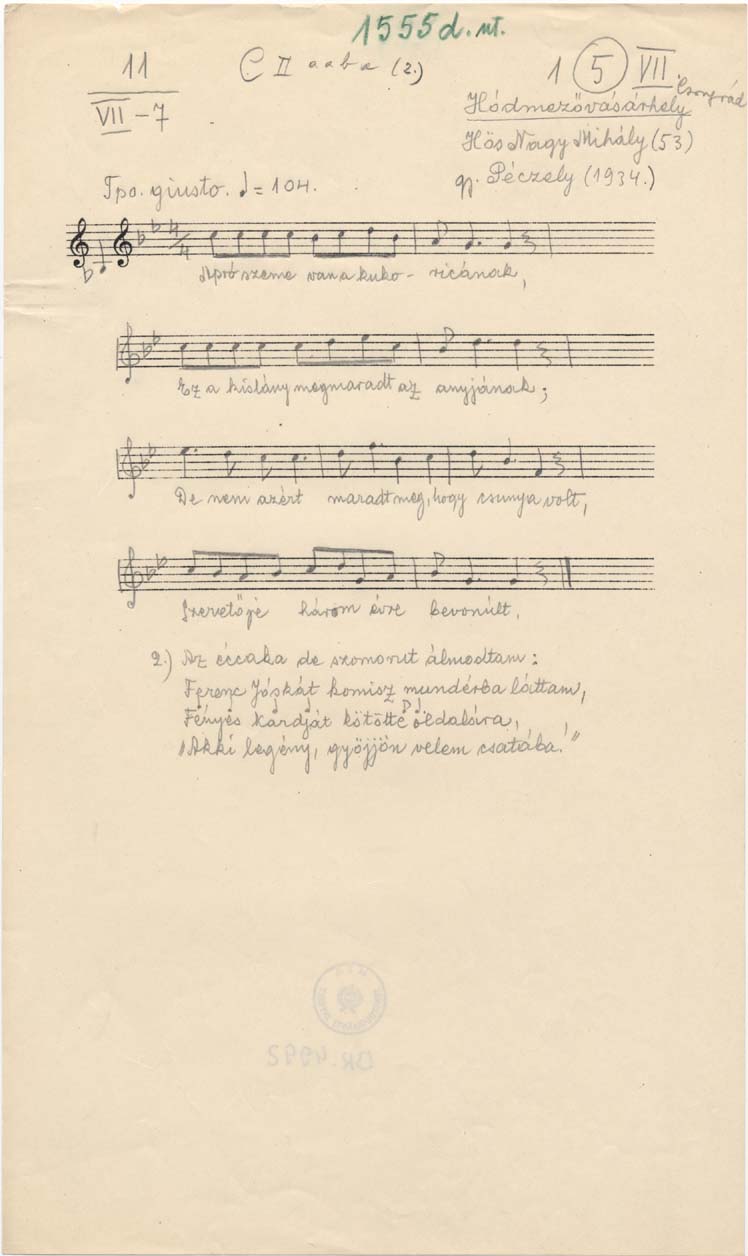 1555d. nt.
11
VII - 7
C II a a b a (2.)
1 5 VII.
Csongrád
Hódmezővásárhely
Hős Nagy Mihály (53)
gy. Péczely (1934.)
Tpo. giusto. ♩ = 104.
4/4
Apró szeme van a kuko - ricának,
Ez a kislány megmaradt az anyjának;
De nem azért maradt meg, hogy csunya volt,
Szeretője három évre bevonúlt.
2.) Az éccaka de szomorut álmodtam:
Ferenc Jóskát komisz mundérba láttam,
Fényes kardját kötötte óldalára,
"Akki legény, gyöjjön velem csatába!"
BR. 4992